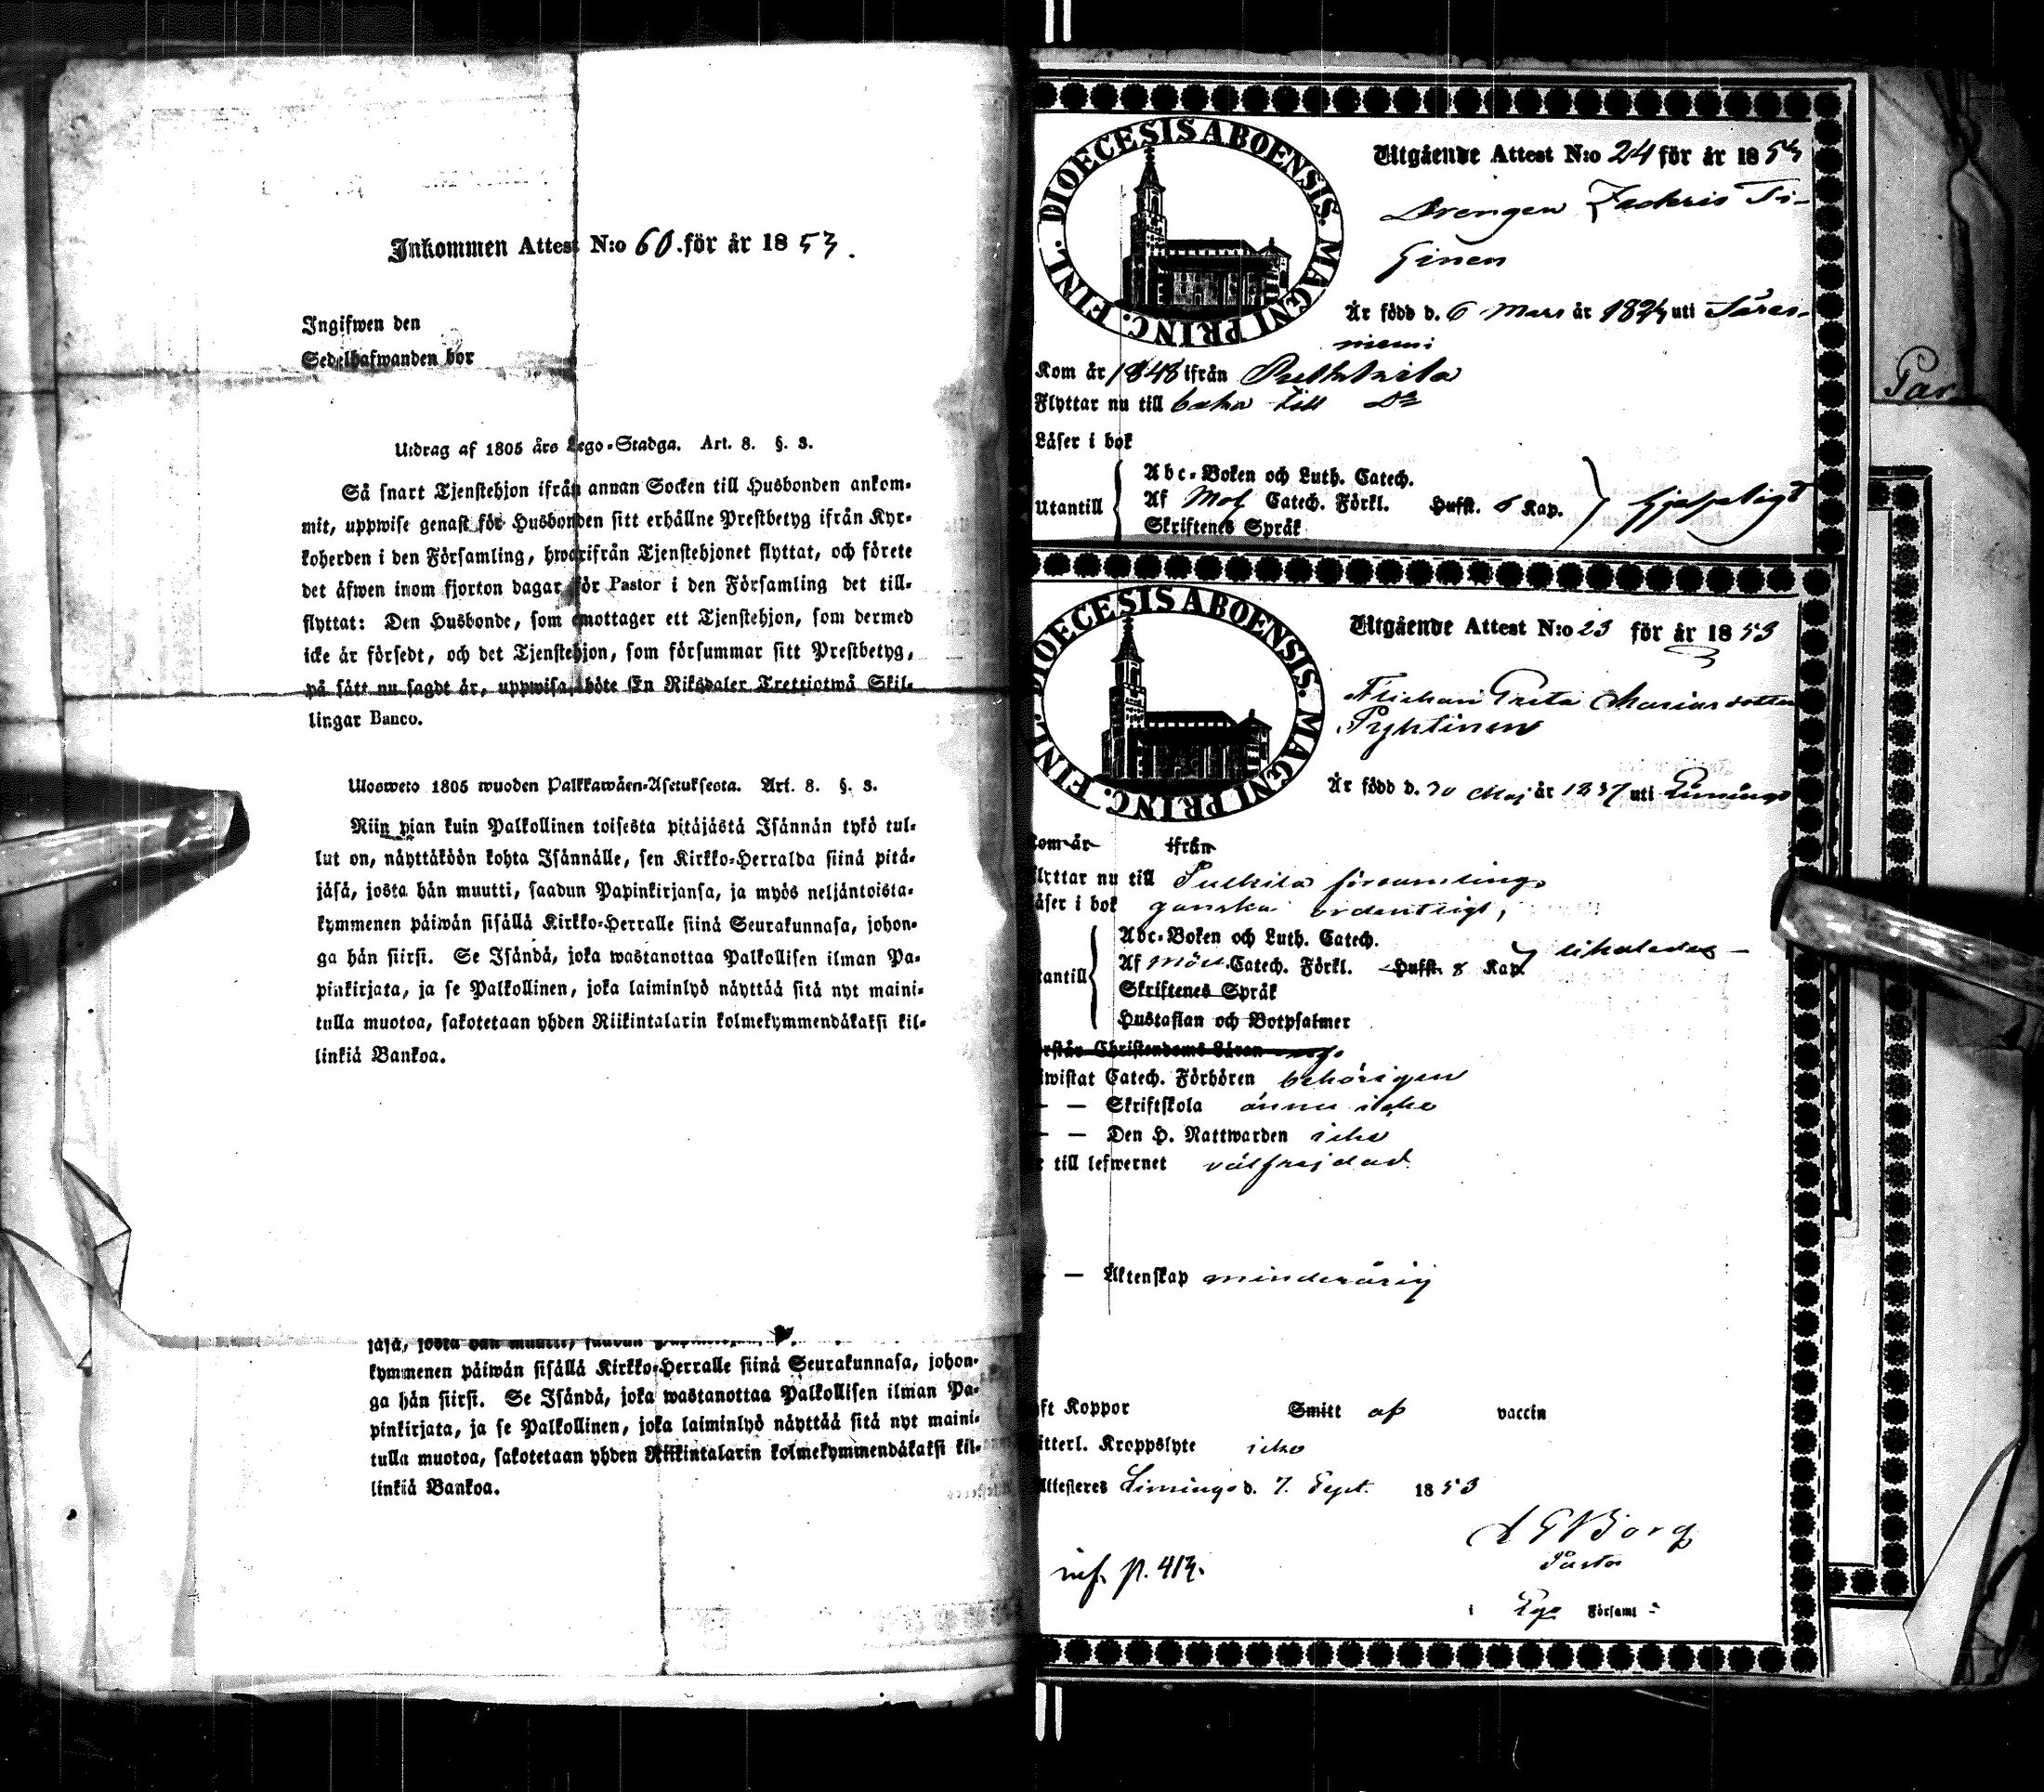 Inkommen Attest N:o 60. för år 1853.
Ingifwen den
Sedelhafwanden bor
Utdrag af 1805 års Lego-Stadga. Art. 8. §. 3.
Så snart Tjenstehjon ifrån annan Socken till Husbonden ankom-
mit, uppwise genast för Husbonden sitt erhållne Prestbetyg ifrån Kyr-
koherden i den Församling, hwarifrån Tjenstehjonet flyttat, och förete
det äfwen inom fjorton dagar för Pastor i den Församling det till-
flyttat: Den Husbonde, som emottager ett Tjenstehjon, som dermed
icke är försedt, och det Tjenstehjon, som försummar sitt Prestbetyg,
på sätt nu sagdt är, uppwisa, böte En Riksdaler Trettiotwå Skil-
lingar Banco.
Ulosweto 1805 wuoden Palkkawäen-Asetuksesta. Art. 8. §. 3.
Niin pian kuin Palkollinen toisesta pitäjästä Isännän tykö tul-
lut on, näyttäköön kohta Isännälle, sen Kirkko-Herralda siinä pitä-
jäsä, josta hän muutti, saadun Papinkirjansa, ja myös neljäntoista-
kymmenen päiwän sisällä Kirkko-Herralle siinä Seurakunnasa, johon-
ga hän siirsi. Se Isändä, joka wastanottaa Palkollisen ilman Pa-
pinkirjata, ja se Palkollinen, joka laiminlyö näyttää sitä nyt maini-
tulla muotoa, sakotetaan yhden Riikintalarin kolmekymmendäkaksi kil-
linkiä Bankoa.
jäsä, josta hän muutti, saadun
kymmenen päiwän sisällä Kirkko-Herralle siinä Seurakunnasa, johon-
ga hän siirsi. Se Isändä, joka wastanottaa Palkollisen ilman Pa-
pinkirjata, ja se Palkollinen, joka laiminlyö näyttää sitä nyt maini-
tulla muotoa, sakotetaan yhden Riikintalarin kolmekymmendäkaksi kil-
linkiä Bankoa.
DIOECESIS ABOENSIS. MAGNI PRINC. FINL.
Utgående Attest N:o 24 för år 1853
Drengen Zachris Ti-
ginen
Är född d. 6 Mars år uti Säres-
niemi
Kom år 1848 ifrån Pulkkila
Flyttar nu till baka till Do
Läser i bok
Utantill
Abc-Boken och Luth. Catech.
Af Catech. Förkl. Hufst. 6 Kap.
Skriftenes Språk
Par
DIOECESIS ABOENSIS. MAGNI PRINC. FINL.
Utgående Attest N:o 23 för år 1853
Flickan Greta Mariasdotter
Pyhtinen
Är född d. 30 Maj år 1837 uti Limingo
Kom år ifrån
lyttar nu till Pulkila församling,
äser i bok ganska ordentligt,
tantill
Abc-Boken och Luth. Catech.
Af Catech. Förkl. Hufst. 8 Kap. likaledes -
Skriftenes Språk
Hustaflan och Botpsalmer
rstår Christendoms Läran
wistat Catech. Förhören behörigen
- - Skriftskola ännu icke
- - Den H. Nattwarden icke
till lefwernet välfrejdad
- - Äktenskap minderårig
ft Koppor Smitt af vaccin
itterl. Kroppslyte icke
Attesteres Limingo d. 7. Sept. 1853
Borg
Pastor
inf. p. 413.
i Församl: